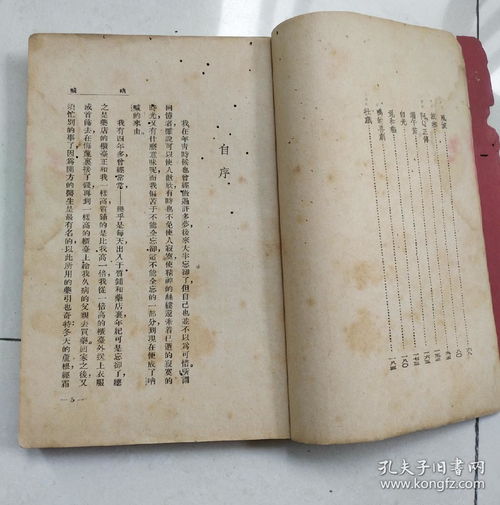 風波
故鄉
阿Q正傳
端午節
白光
兔和貓
鴨的喜劇
社戲
吶喊
自序
我在年青時候也曾經做過許多夢後來大半忘卻了但自己也並不以為可惜所謂
回憶者雖說可以使人歡欣有時也不免使人寂寞使精神的絲縷還牽着已逝的寂寞的
時光又有什麼意味呢而我偏苦于不能全忘卻這不能全忘的一部分到現在便成了吶
喊的來由
我有四年多曾經常常——幾乎是每天出入于質鋪和藥店裏年紀可是忘卻了總
之是藥店的櫃臺正和我一樣高質鋪的是比我高一倍我從一倍高的櫃臺外送上衣服
或首飾去在侮蔑裏接了錢再到一樣高的櫃臺上給我久病的父親去買藥回家之後又
須忙別的事了因為開方的醫生是最有名的以此所用的藥引也奇特冬天的蘆根經霜
—5—
孔夫子旧书网
www.kongfz.com